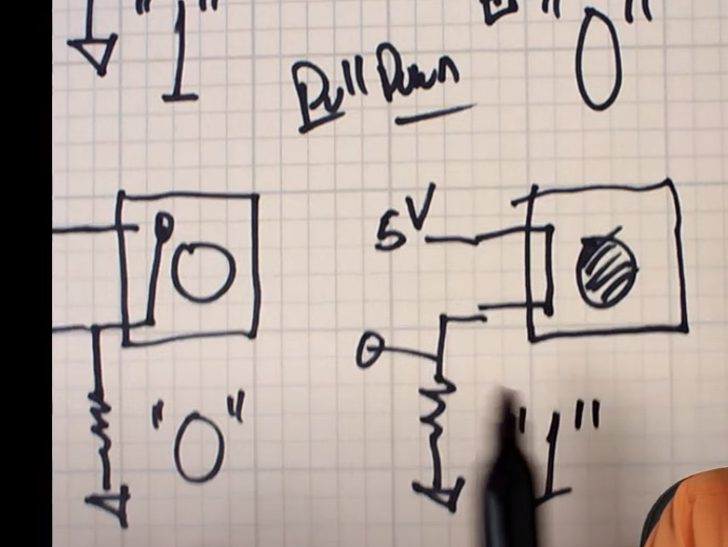 "1"
"0"
Pull Down
5V
"0"
"1"